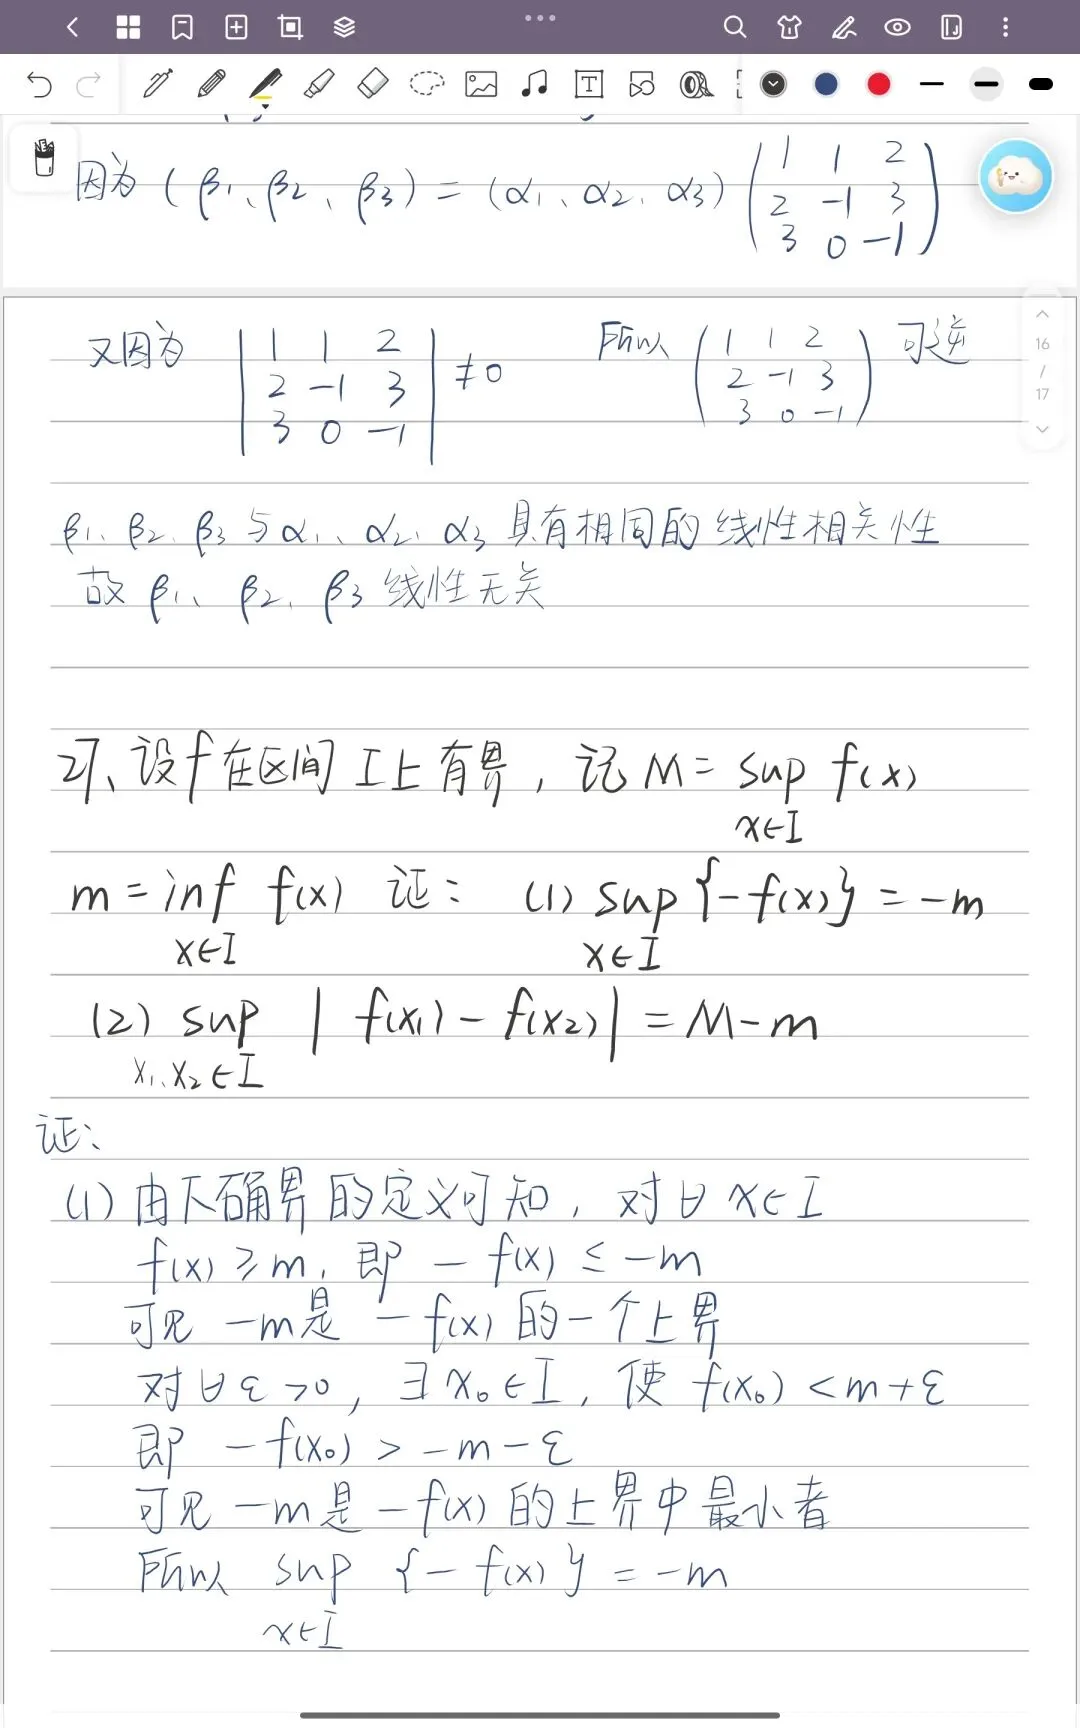 因为 (β1、β2、β3) = (α1、α2、α3) ( 1 1 2
2 -1 3
3 0 -1 )
16
/
17
又因为 | 1 1 2
2 -1 3
3 0 -1 | ≠0 所以 ( 1 1 2
2 -1 3
3 0 -1 ) 可逆
β1、β2、β3 与 α1、α2、α3 具有相同的线性相关性
故 β1、β2、β3 线性无关
27、设f在区间I上有界，记 M = sup f(x)
x∈I
m = inf f(x) 证： (1) sup {-f(x)} = -m
x∈I x∈I
(2) sup | f(x1) - f(x2) | = M-m
x1、x2∈I
证：
(1) 由下确界的定义可知，对∀x∈I
f(x) ≥ m，即 -f(x) ≤ -m
可见 -m是 -f(x) 的一个上界
对∀ε>0，∃x0∈I，使 f(x0) < m+ε
即 -f(x0) > -m-ε
可见 -m是 -f(x) 的上界中最小者
所以 sup {-f(x)} = -m
x∈I